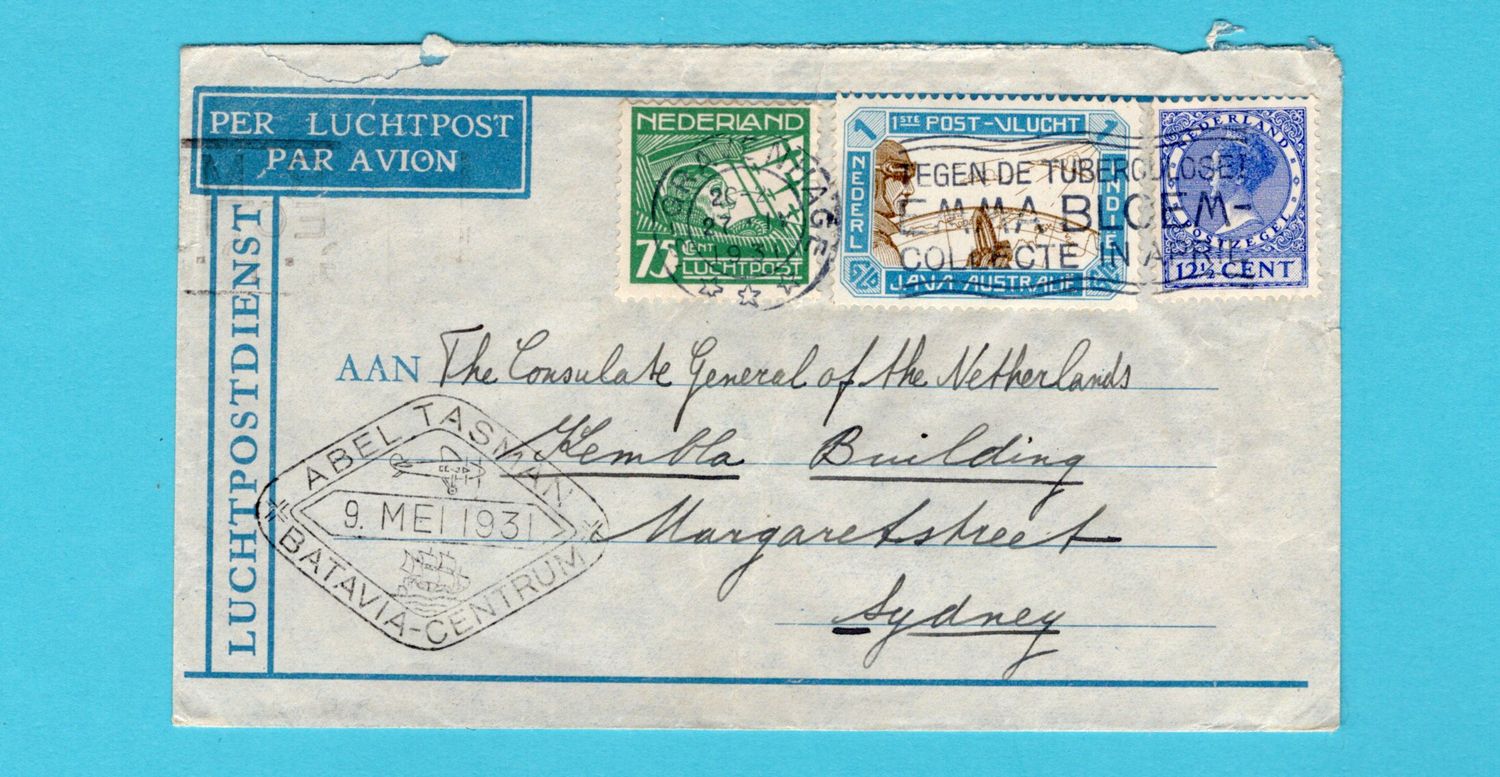 PER LUCHTPOST
PAR AVION
LUCHTPOSTDIENST
NEDERLAND
75
CENT
LUCHTPOST
'S-GRAVENHAGE
1931
1 1STE POST-VLUCHT 1
NEDERL
INDIË
JAVA AUSTRALIË
NEDERLAND
POSTZEGEL
12½ CENT
TEGEN DE TUBERCULOSE!
EMMA BLOEM-
COLLECTE IN APRIL
AAN The Consulate General of the Netherlands
Kembla Building
Margaretstreet
Sydney
ABEL TASMAN
9. MEI 1931
BATAVIA-CENTRUM